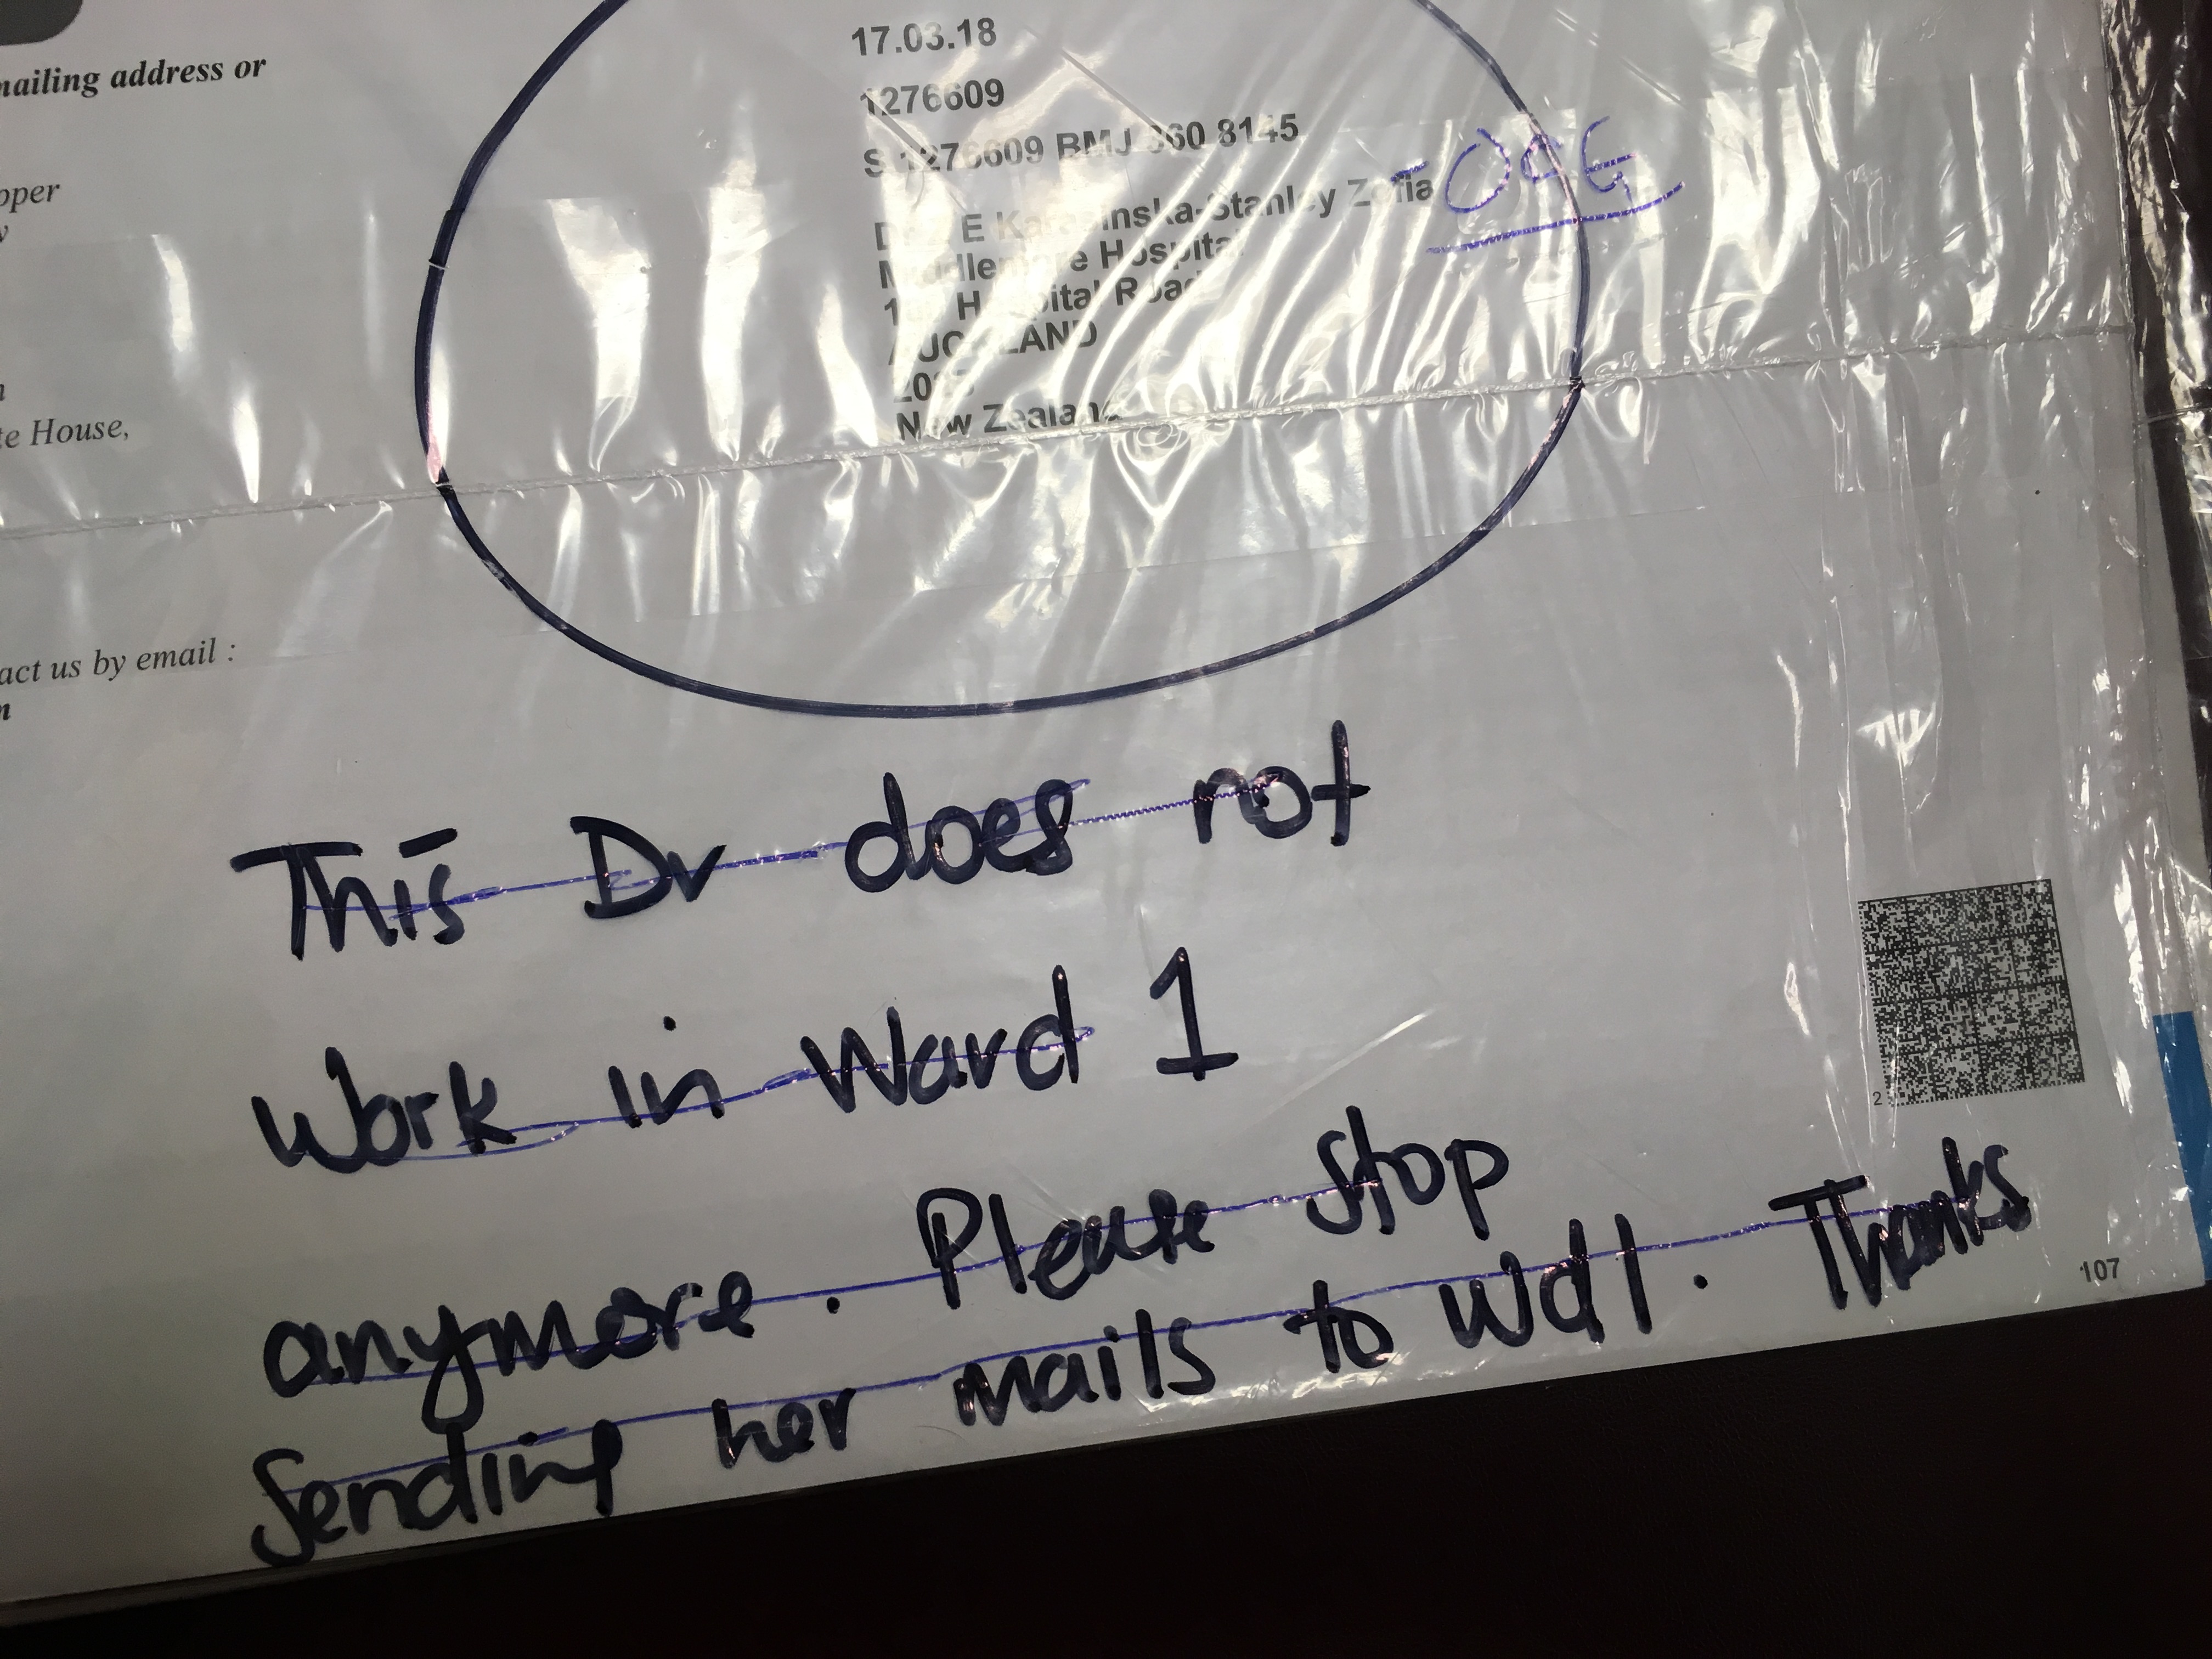 mailing address or
17.03.18
1276609
S 1276609 BMJ 360 8145
E Karasinska-Stanley Zofia
Middlemore Hospital
Hospital Road
AUCKLAND
New Zealand
te House,
act us by email :
This Dr does not
Work in Ward 1
anymore. Please stop
Sending her mails to Wd1. Thanks
2
107